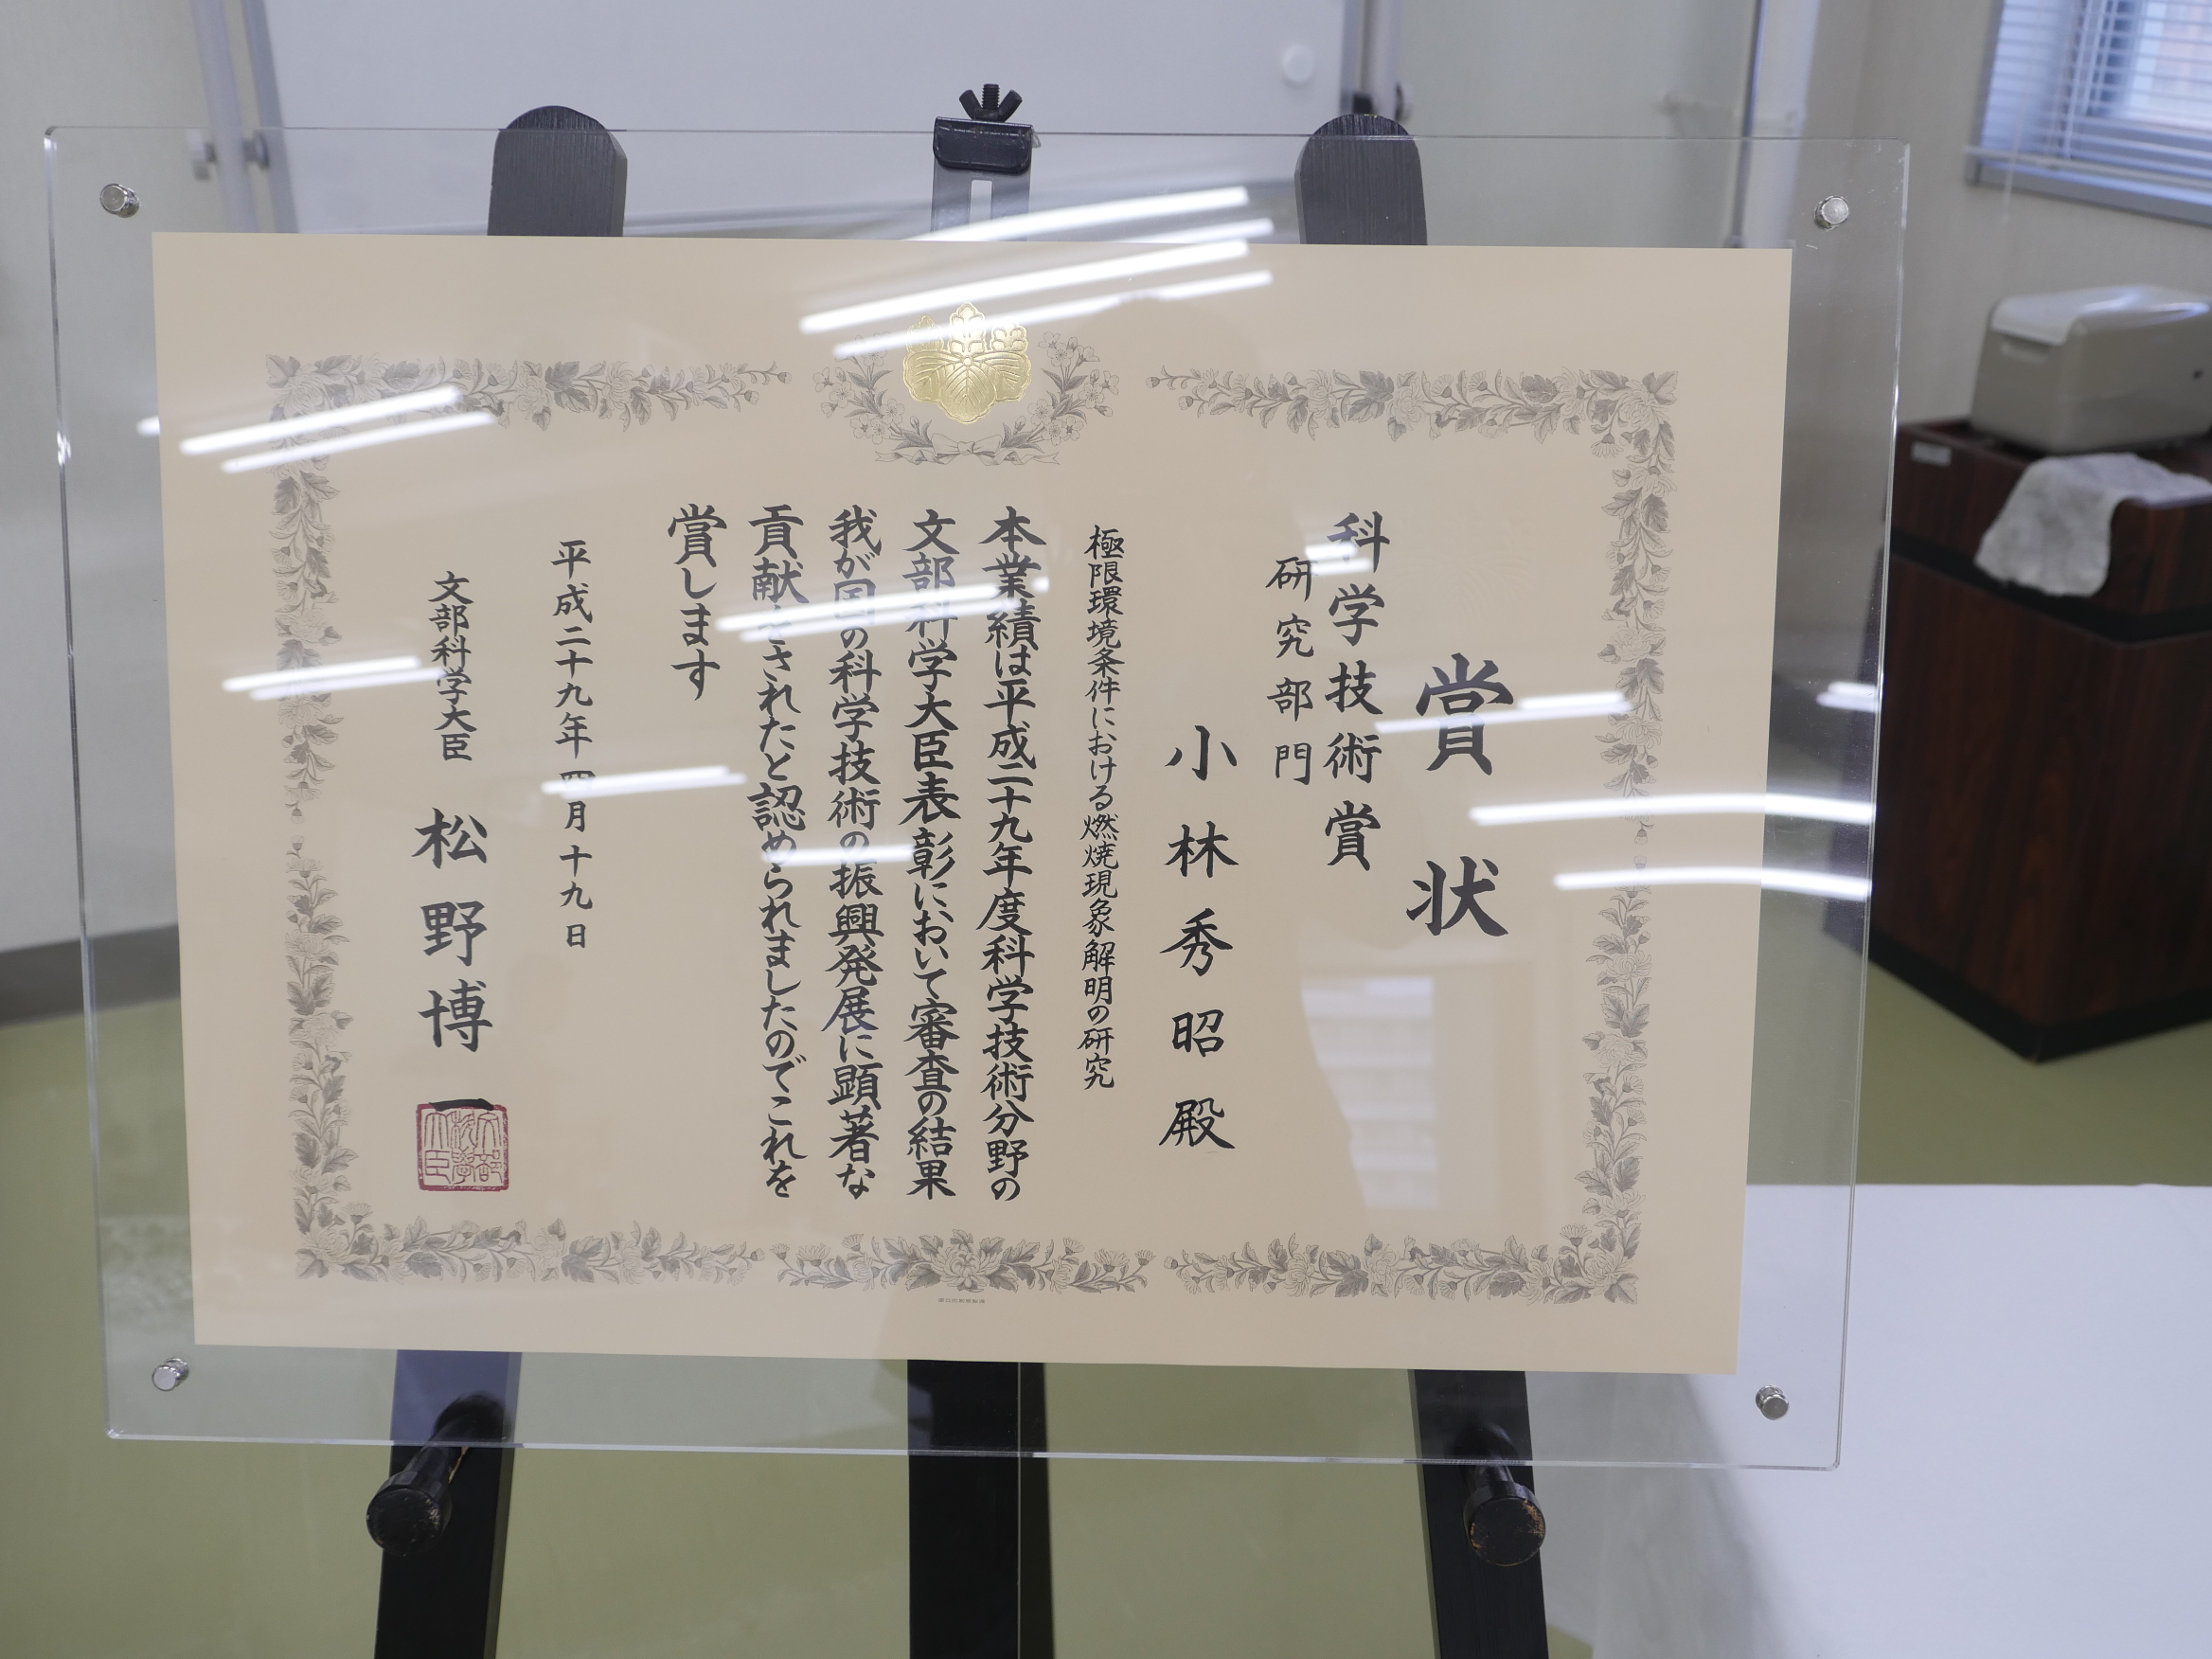 賞状
科学技術賞
研究部門
小林秀昭殿
極限環境条件における燃焼現象解明の研究
本業績は平成二十九年度科学技術分野の
文部科学大臣表彰において審査の結果
我が国の科学技術の振興発展に顕著な
貢献をされたと認められましたのでこれを
賞します
平成二十九年四月十九日
文部科学大臣
松野博一
文部科學大臣